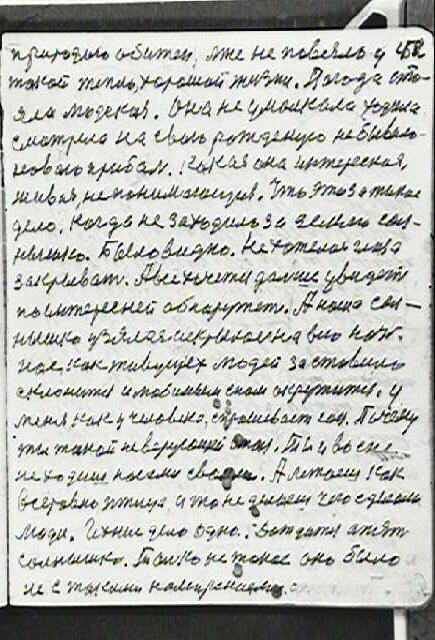 природы обитен, уже не повеяло у 452
такой тепло, хорошой жизни. Погода сто-
яла людская. Она не умолкала ходила
смотрела на свою рожденую небывало-
новаго прибал. Какая она интересная,
живая, непонимающая. Что это за такое
дело, когда не заходило за землю сол-
нышко. Было видно. Не хотелось глаза
закриват. А все хочется дальше увидеть
поинтересней обнаружет. А наша сол-
нышко взялася скрылося на
как живущех людей заставило
склонится и любимым сном окружится. У
меня как у человека, спрашивает сон. Почему
ты такой неверующий стал. Ты и во сне
не ходиш ногами своими. А летаеш как
всеравно птица и то не делаеш чего сделали
люди. Ихние дело одно. Дождатся опят
солнышко. Только не такое оно было
не с такими намерениями.